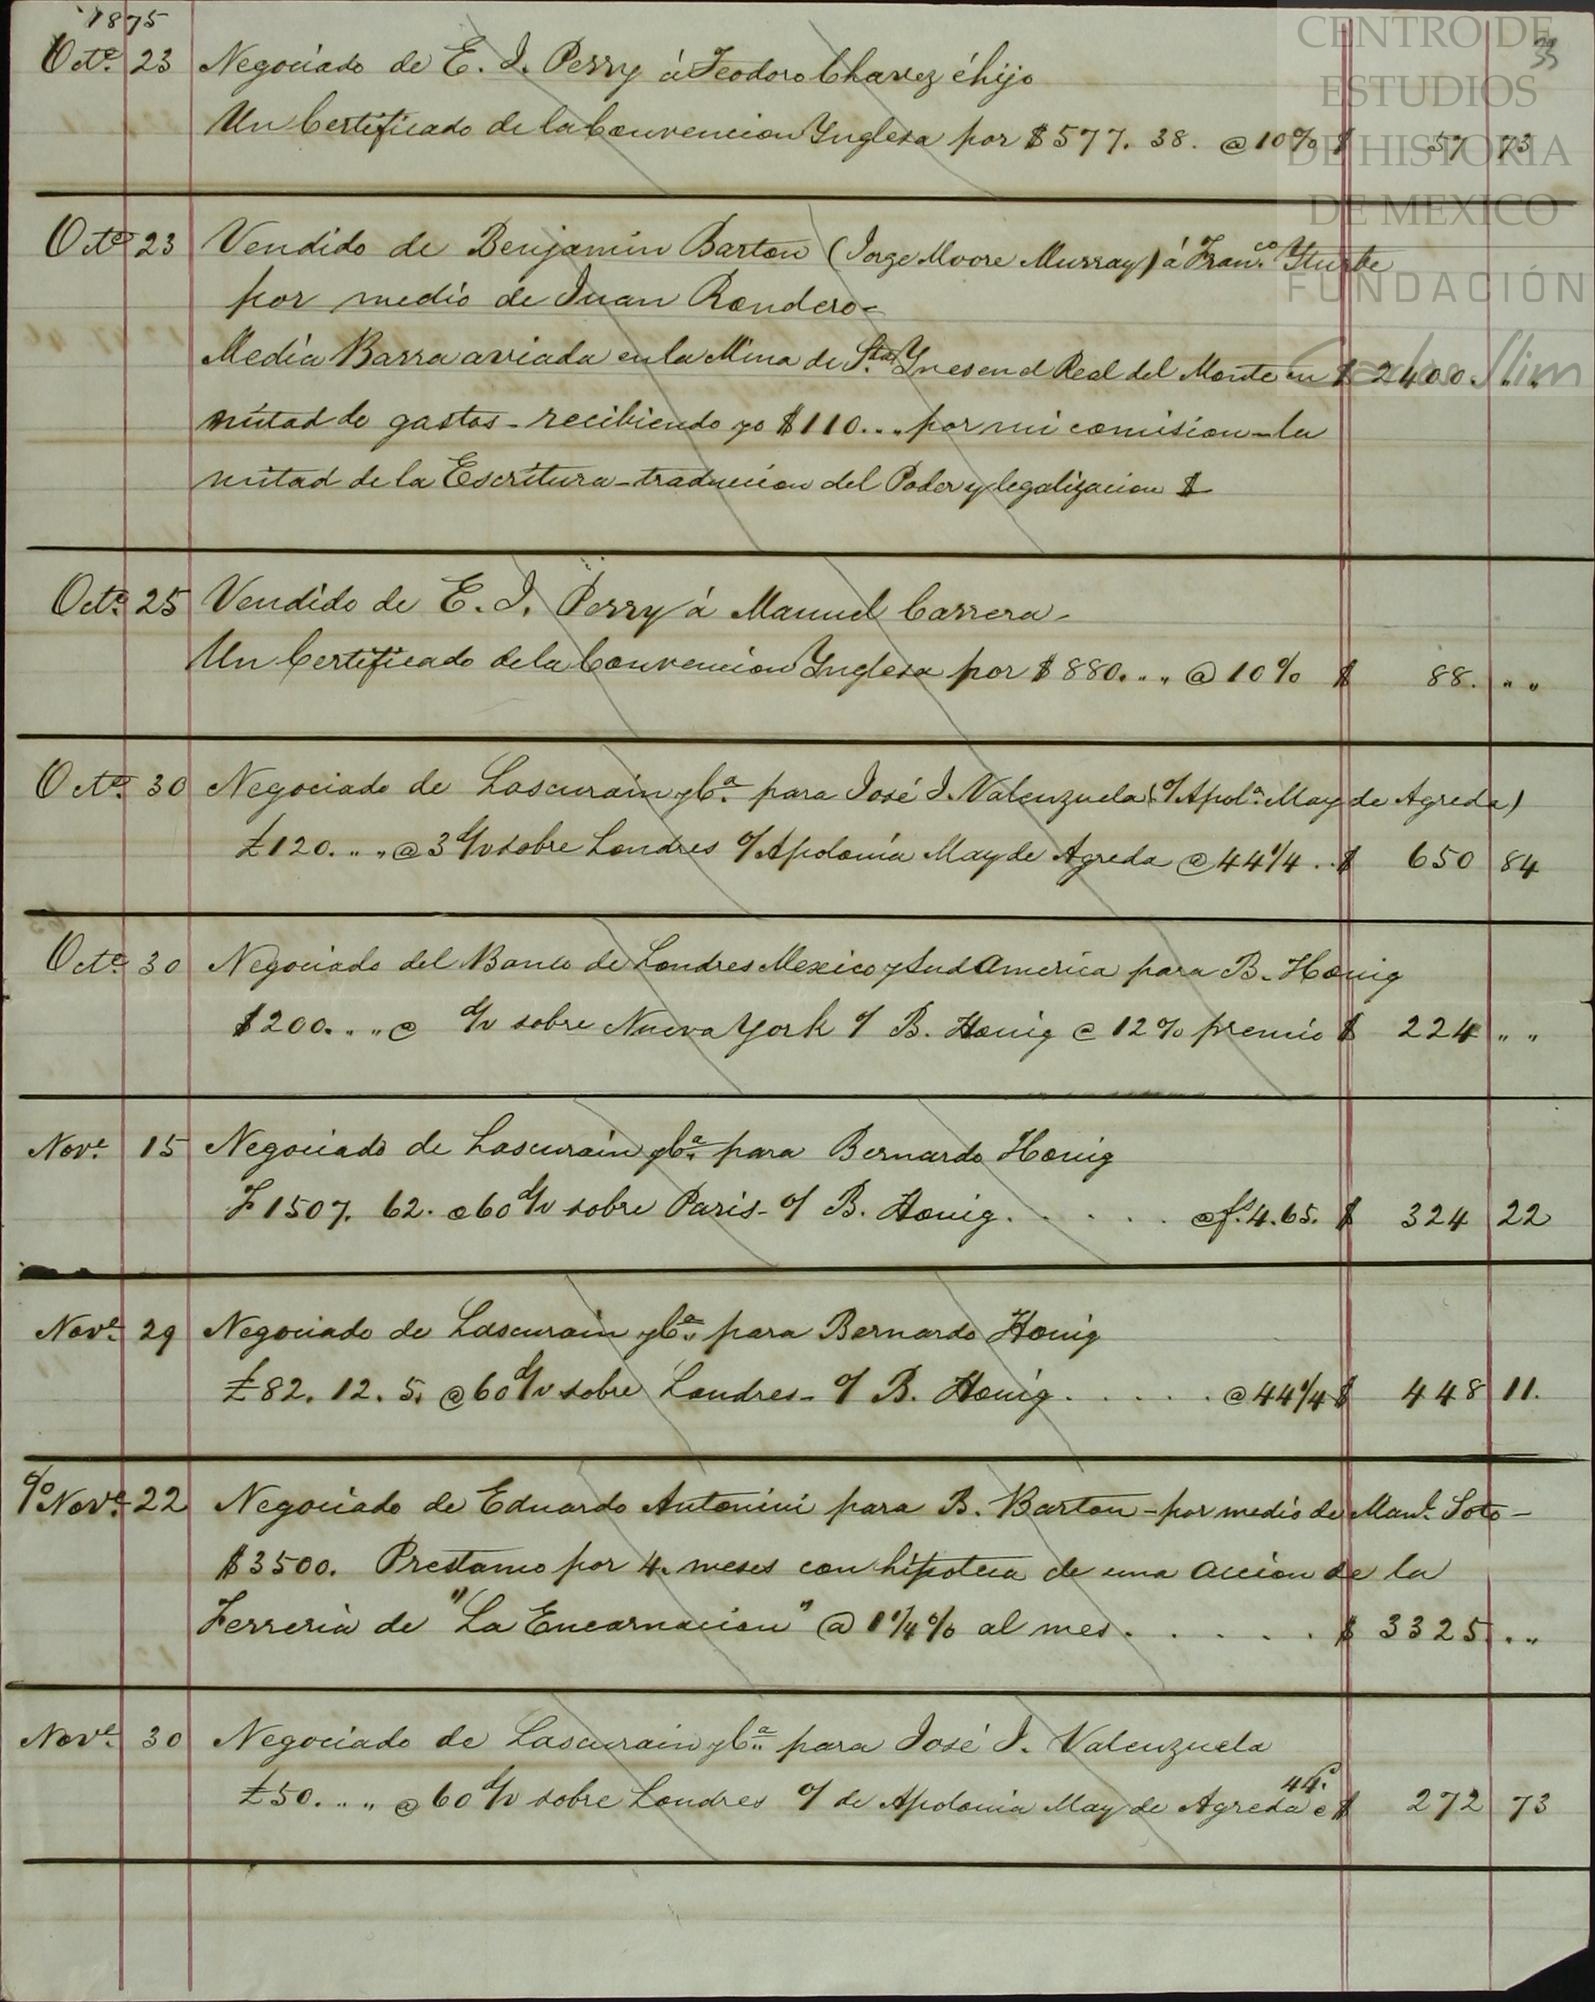 1875
33
Octe. 23 Negociado de E. J. Perry á Teodoro Chavez é hijo
Un Certificado de la Convencion Ynglesa por $577. 38. @ 10% $ 57 73
Octe. 23 Vendido de Benjamin Barton (Jorge Moore Murray) á Franco. Yturbe
por medio de Juan Rondero-
Media Barra aviada en la Mina de Sta. Ynes en el Real del Monte en $ 2400. „ „
mitad de gastos - recibiendo yo $110. „ „ por mi comision - la
mitad de la Escritura - traduccion del Poder y legalizacion $
Octe. 25 Vendido de E. J. Perry á Manuel Carrera -
Un Certificado de la Convencion Ynglesa por $880. „ „ @ 10% $ 88. „ „
Octe. 30 Negociado de Lascurain y Ca. para José J. Valenzuela (o/ Apola. May de Agreda)
£120. „ „ @ 3 d/v sobre Londres o/ Apolonia May de Agreda @ 44 1/4 .. $ 650 84
Octe. 30 Negociado del Banco de Londres Mexico y Sud America para B. Hœnig
$200. „ „ @ d/v sobre Nueva York o/ B. Hœnig @ 12% premio $ 224 „ „
Nove. 15 Negociado de Lascurain y Ca. para Bernardo Hœnig
F 1507. 62. @ 60 d/v sobre Paris - o/ B. Hœnig . . . . . @ f. 4.65. $ 324 22
Nove. 29 Negociado de Lascurain y Ca. para Bernardo Hœnig
£82. 12. 5. @ 60 d/v sobre Londres - o/ B. Hœnig . . . . . @ 44 1/4 $ 448 11.
Nove. 22 Negociado de Eduardo Antonini para B. Barton - por medio de Manl. Soto -
$3500. Prestamo por 4. meses con hipoteca de una accion de la
Ferreria de "La Encarnacion" @ 1 1/4 % al mes . . . . . . $ 3325. „ „
Nove. 30 Negociado de Lascurain y Ca. para José J. Valenzuela
£50. „ „ @ 60 d/v sobre Londres o/ de Apolonia May de Agreda @ 44. $ 272 73
CENTRO DE
ESTUDIOS
DE HISTORIA
DE MEXICO
FUNDACIÓN
Carlos Slim